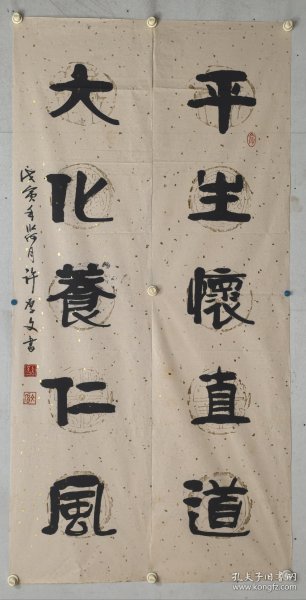 平生懷直道
大化養仁風
戊寅年
月許
文書
孔夫子旧书网